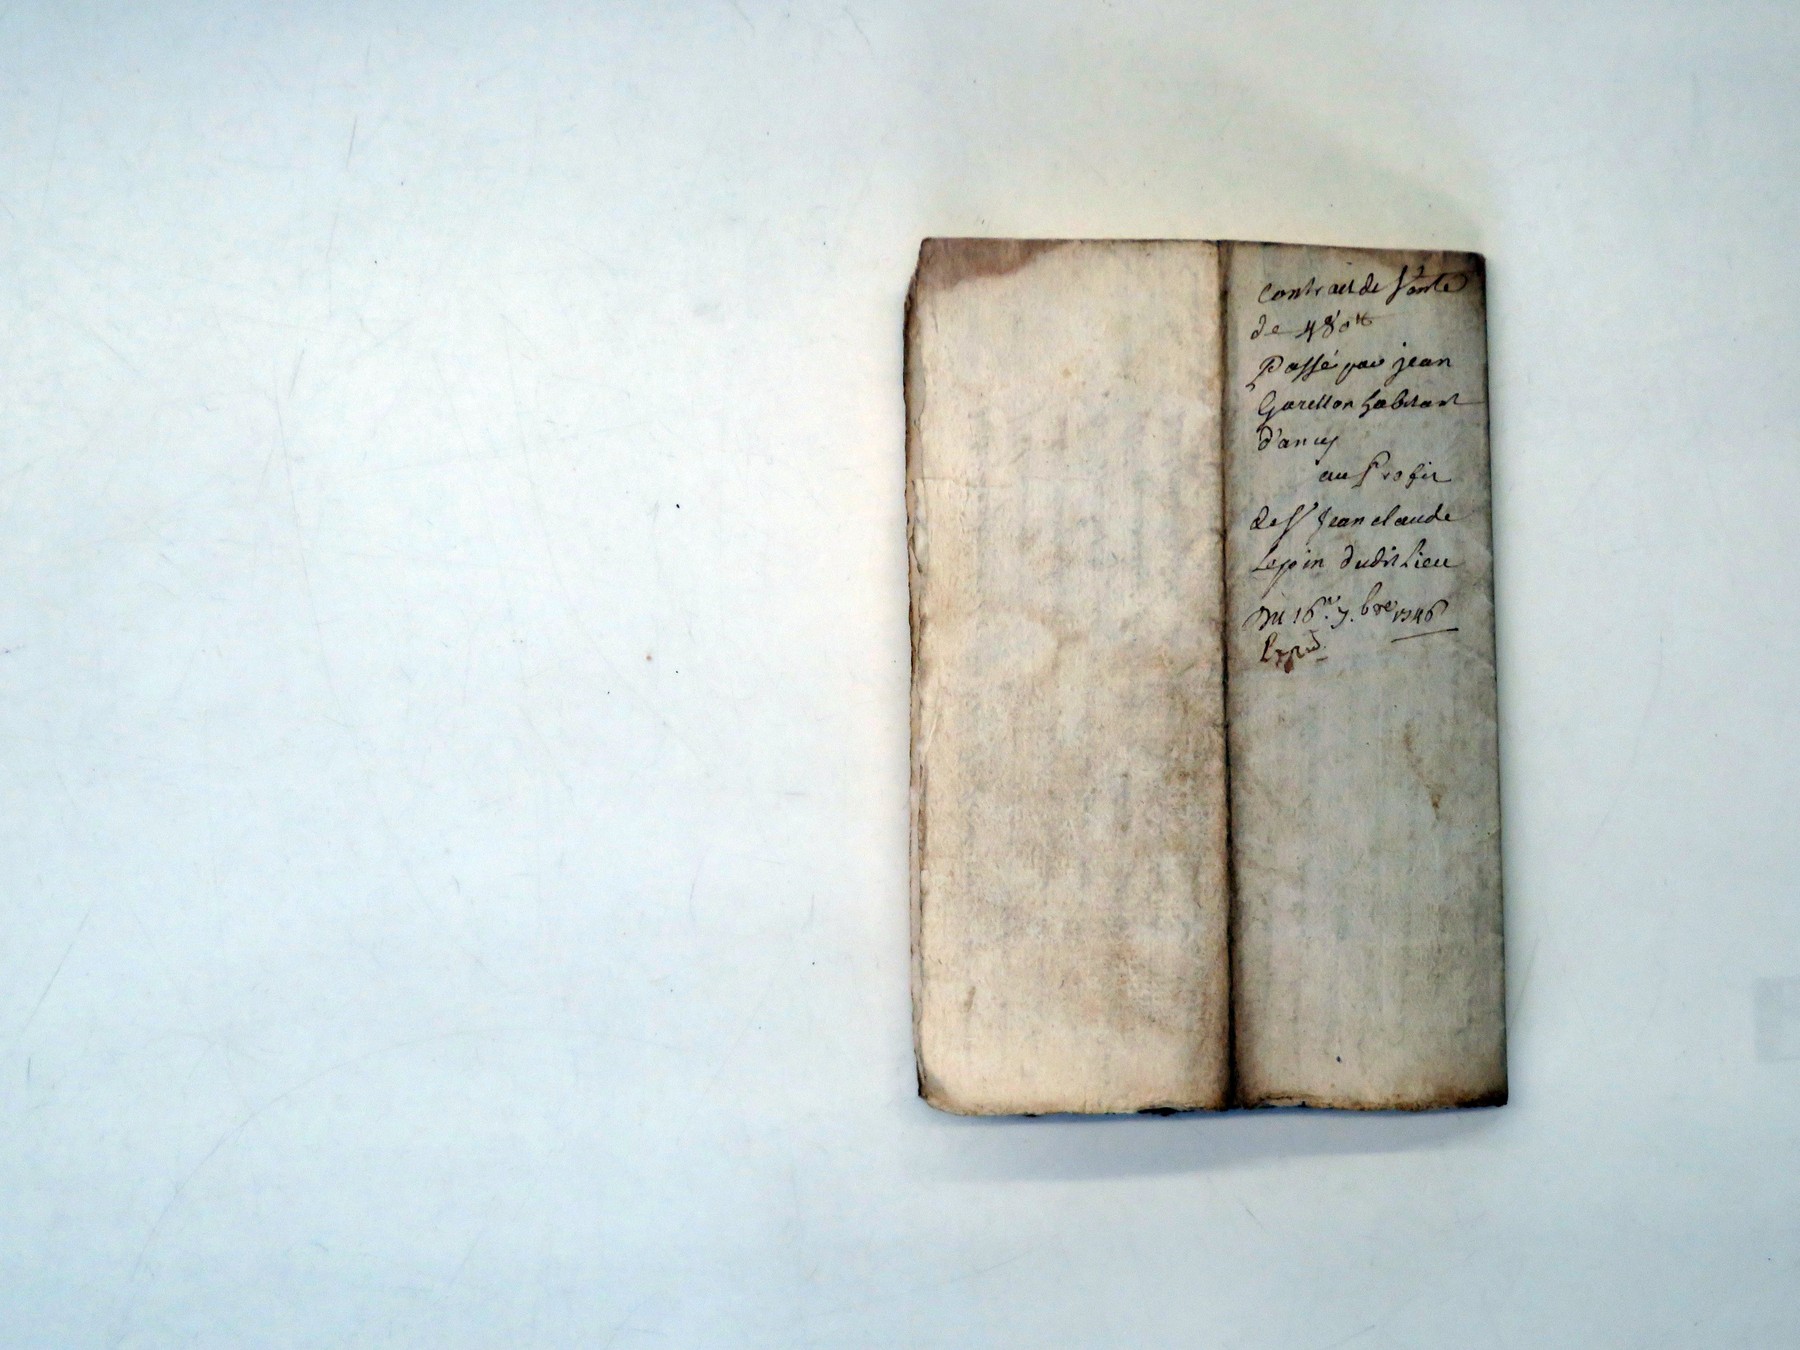 Contract de Vante
de 480 lt
Passé par jean
Garellon habitant
d'ancy
au Profit
de Sr Jean claude
Lepin dudit Lieu
Du 16e 7.bre 1746
Expd